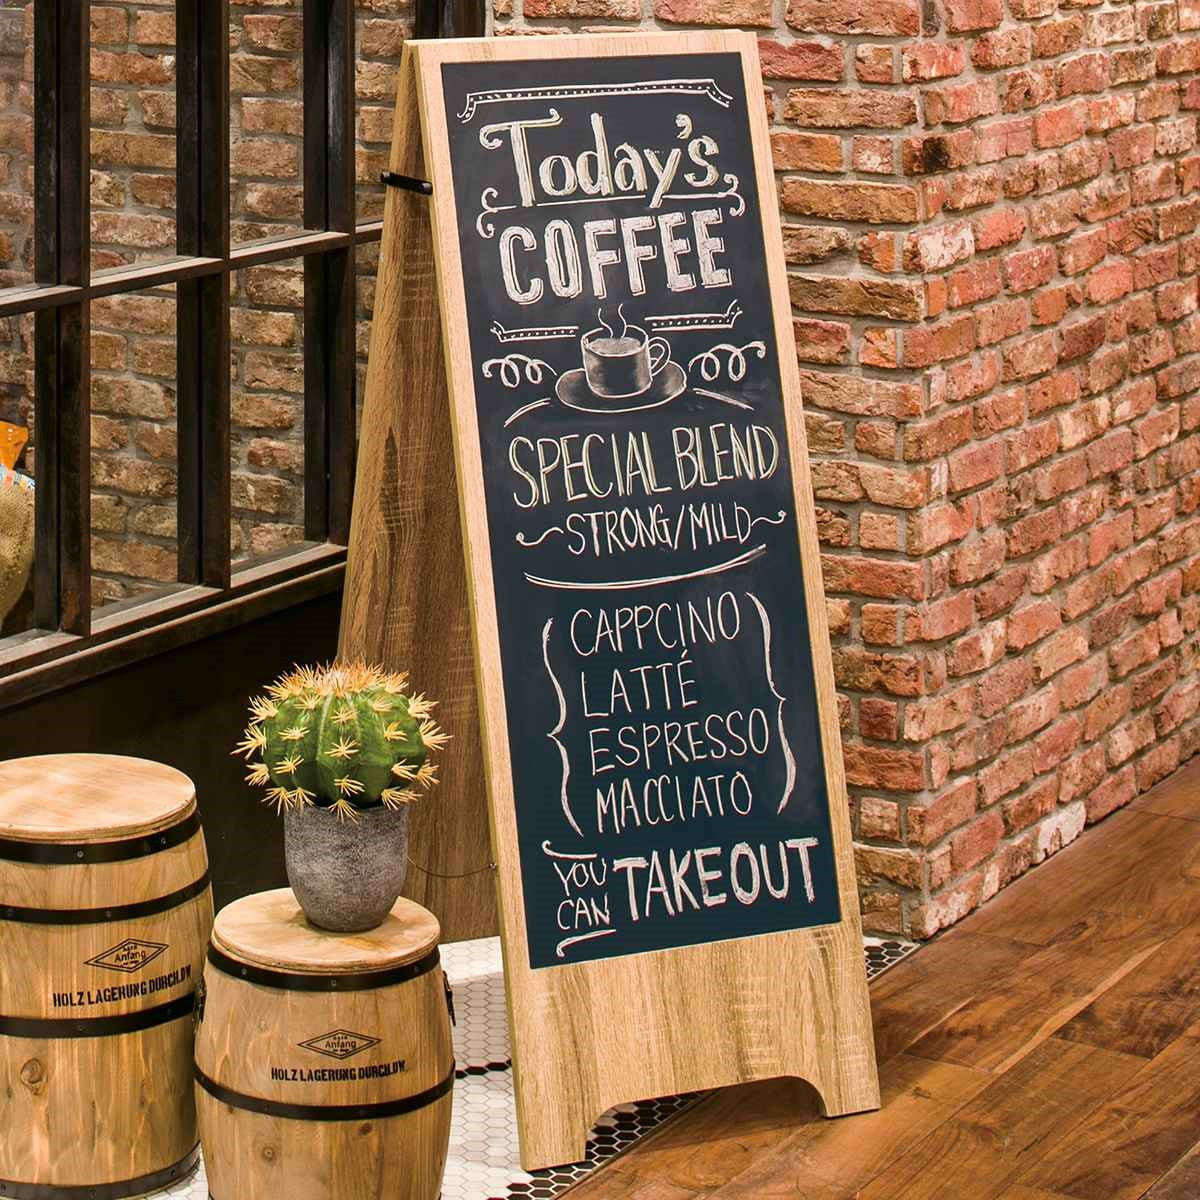 Today's
COFFEE
SPECIAL BLEND
STRONG/MILD
CAPPCINO
LATTÉ
ESPRESSO
MACCIATO
YOU CAN TAKEOUT
Anfang
HOLZ LAGERUNG DURCH.DW
Anfang
HOLZ LAGERUNG DURCH.DW